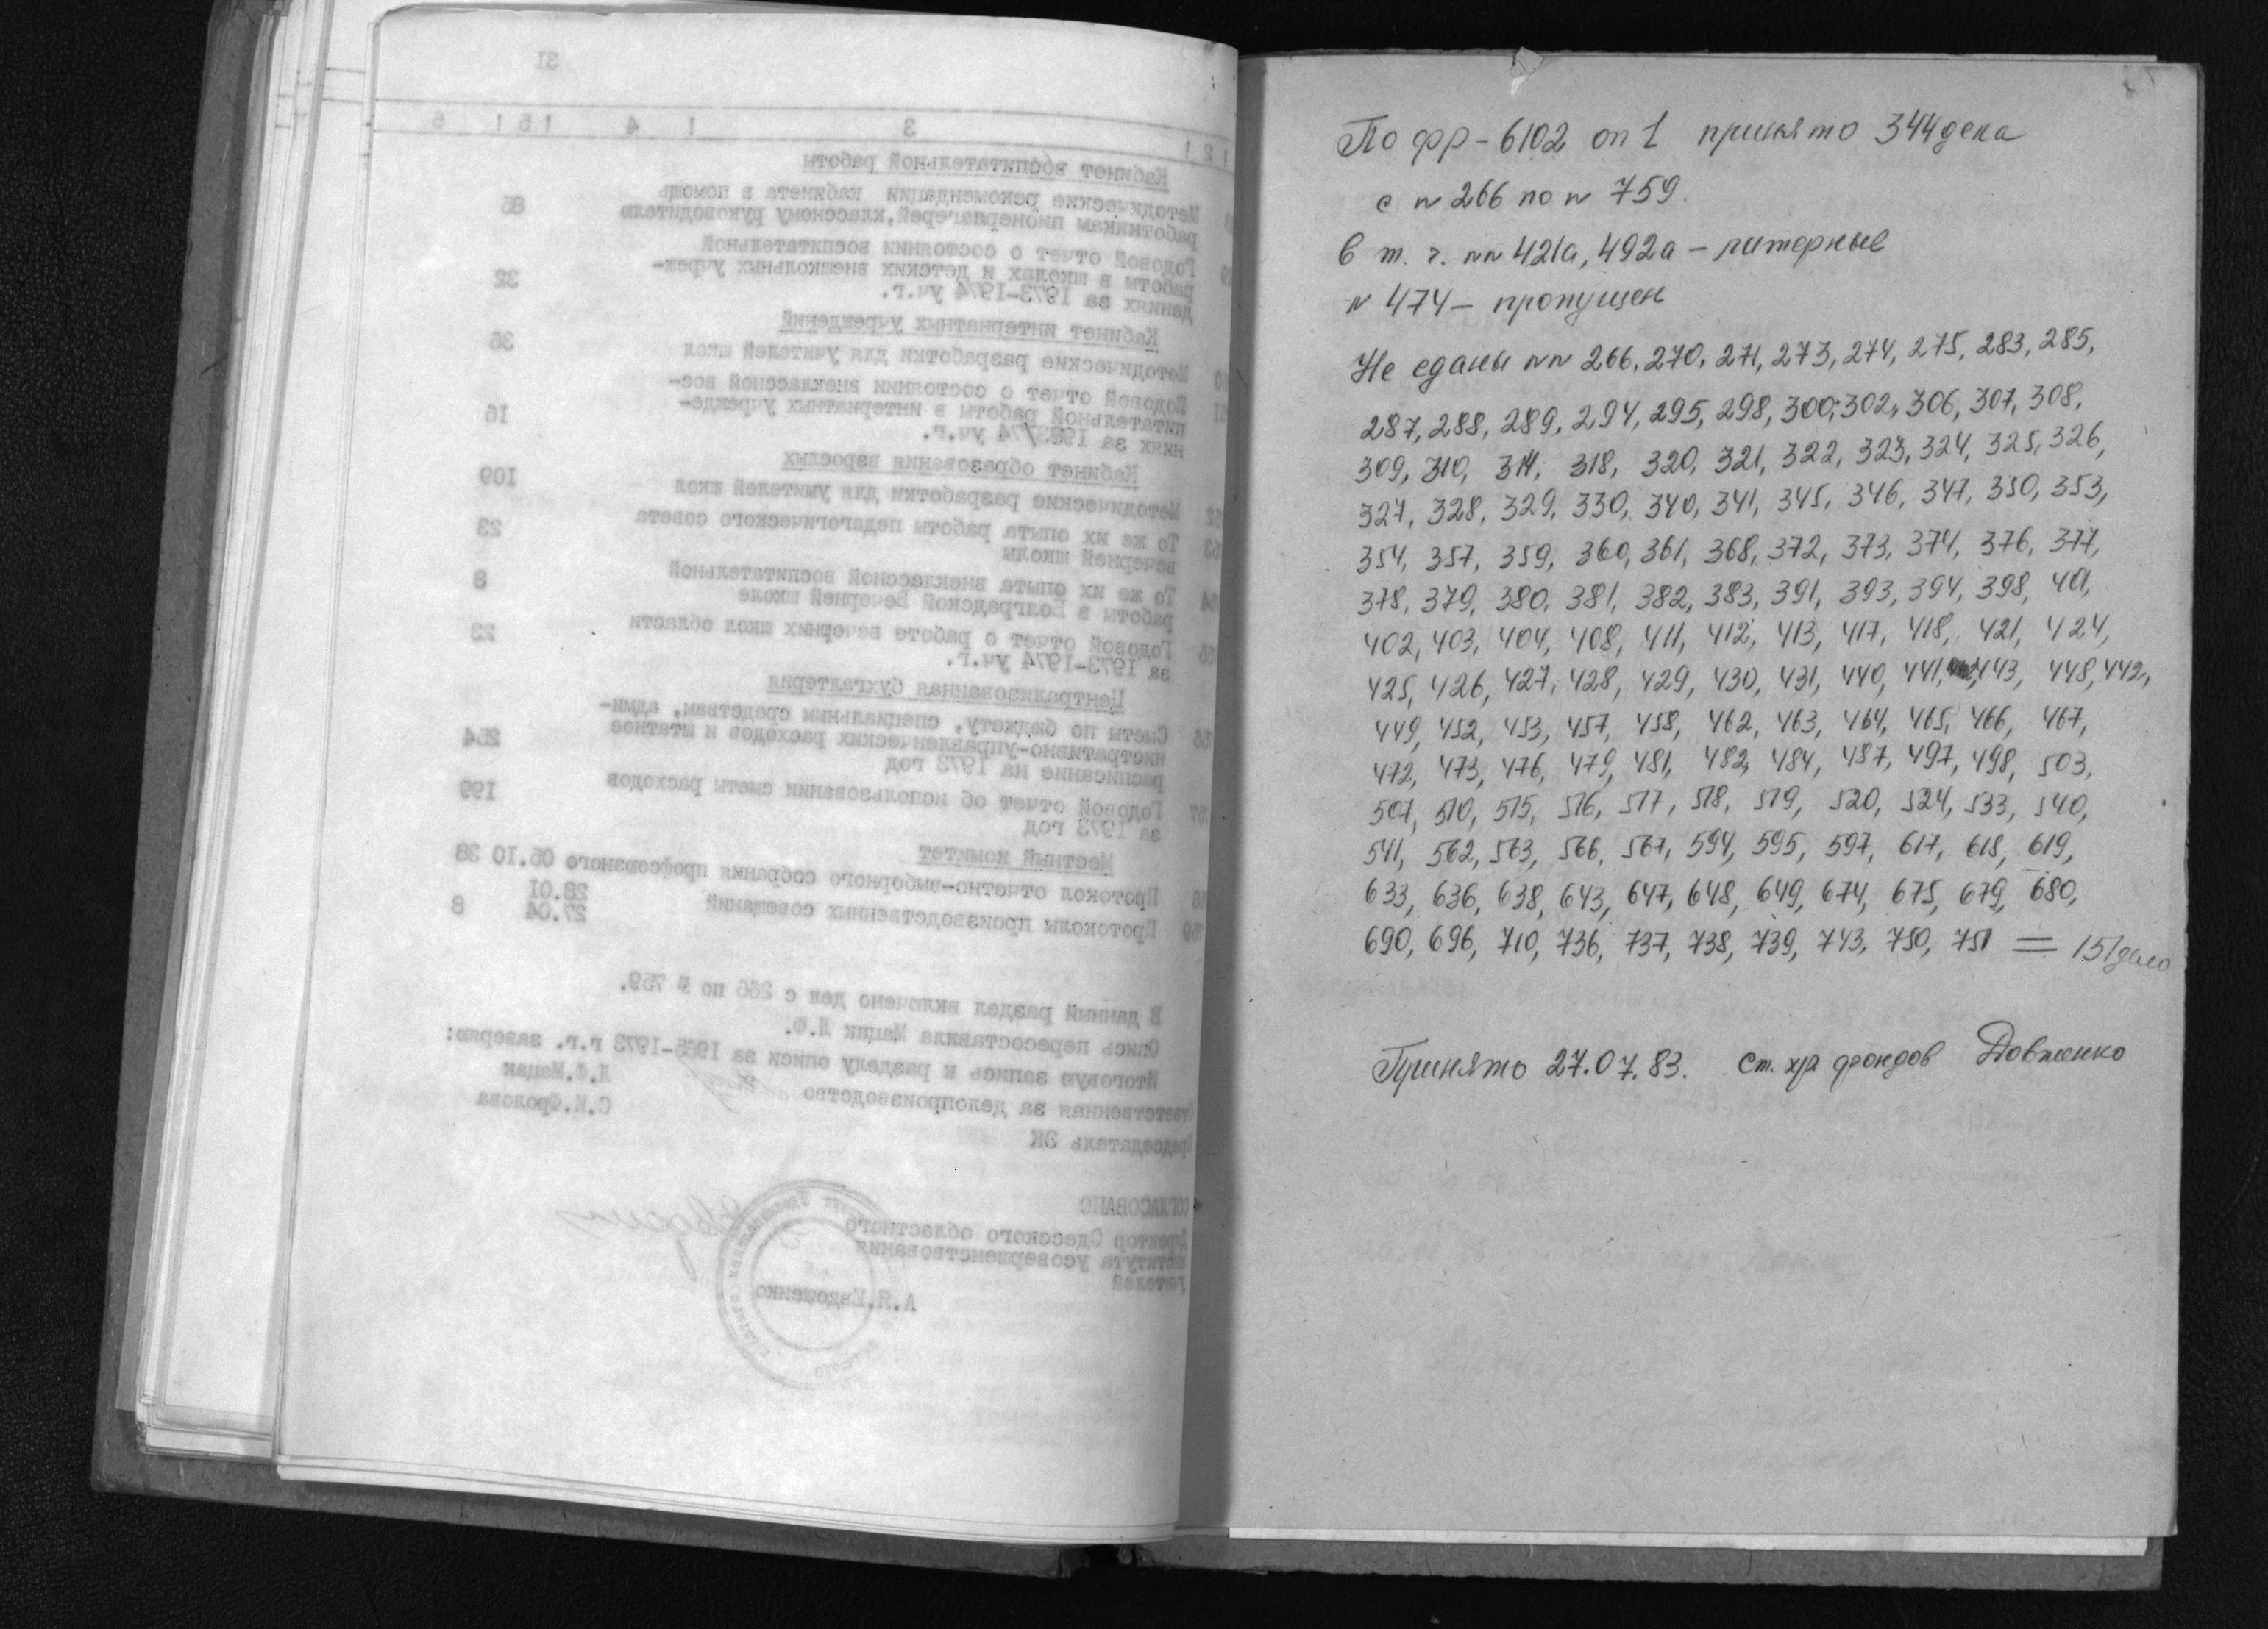 31
1 2 ! 3 ! 4 ! 5 ! 6
Кабинет воспитательной работы
Методические рекомендации кабинета в помощь
работникам пионерлагерей,классному руководителю 85
Годовой отчет о состоянии воспитательной
работы в школах и детских внешкольных учреж-
дениях за 1973-1974 уч.г. 32
Кабинет интернатных учреждений
Методические разработки для учителей школ 36
Годовой отчет о состоянии внеклассной вос-
питательной работы в интернатных учрежде-
ниях за 1973/74 уч.г. 16
Кабинет образования взрослых
Методические разработки для учителей школ 109
То же их опыта работы педагогического совета
вечерней школы 23
То же их опыта внеклассной воспитательной
работы в Болградской вечерней школе 8
Годовой отчет о работе вечерних школ области
за 1973-1974 уч.г. 23
Централизованная бухгалтерия
Сметы по бюджету, специальным средствам, адми-
нистративно-управленческих расходов и штатное
расписание на 1973 год 254
Годовой отчет об использовании сметы расходов
за 1973 год 199
Местный комитет
Протокол отчетно-выборного собрания профсоюзного 05.10 38
Протоколы производственных совещаний 28.01
27.04 8
В данный раздел включено дел с 266 по № 759.
Опись пересоставила Мацик Л.Ф.
Итоговую запись к разделу описи за 1965-1973 г.г. заверяю:
Ответственная за делопроизводство Л.Ф.Мацак
Председатель ЭК С.И.Фролова
СОГЛАСОВАНО
Директор Одесского областного
института усовершенствования
учителей А.Я.Евдошенко
По фр-6102 оп 1 принято 344 дела
с № 266 по № 759.
в т. ч. №№ 421а, 492а – литерные
№ 474 – пропущен
Не сданы №№ 266, 270, 271, 273, 274, 275, 283, 285,
287, 288, 289, 294, 295, 298, 300, 302, 306, 307, 308,
309, 310, 314, 318, 320, 321, 322, 323, 324, 325, 326,
327, 328, 329, 330, 340, 341, 345, 346, 347, 350, 353,
354, 357, 359, 360, 361, 368, 372, 373, 374, 376, 377,
378, 379, 380, 381, 382, 383, 391, 393, 394, 398, 401,
402, 403, 404, 408, 411, 412, 413, 417, 418, 421, 424,
425, 426, 427, 428, 429, 430, 431, 440, 441, 443, 448, 442,
449, 452, 453, 457, 458, 462, 463, 464, 465, 466, 467,
472, 473, 476, 479, 481, 482, 484, 487, 497, 498, 503,
507, 510, 515, 516, 517, 518, 519, 520, 524, 533, 540,
541, 562, 563, 566, 567, 594, 595, 597, 617, 618, 619,
633, 636, 638, 643, 647, 648, 649, 674, 675, 679, 680,
690, 696, 710, 736, 737, 738, 739, 743, 750, 751 = 151 дело
Принято 27.07.83. Ст. хр фондов Довженко